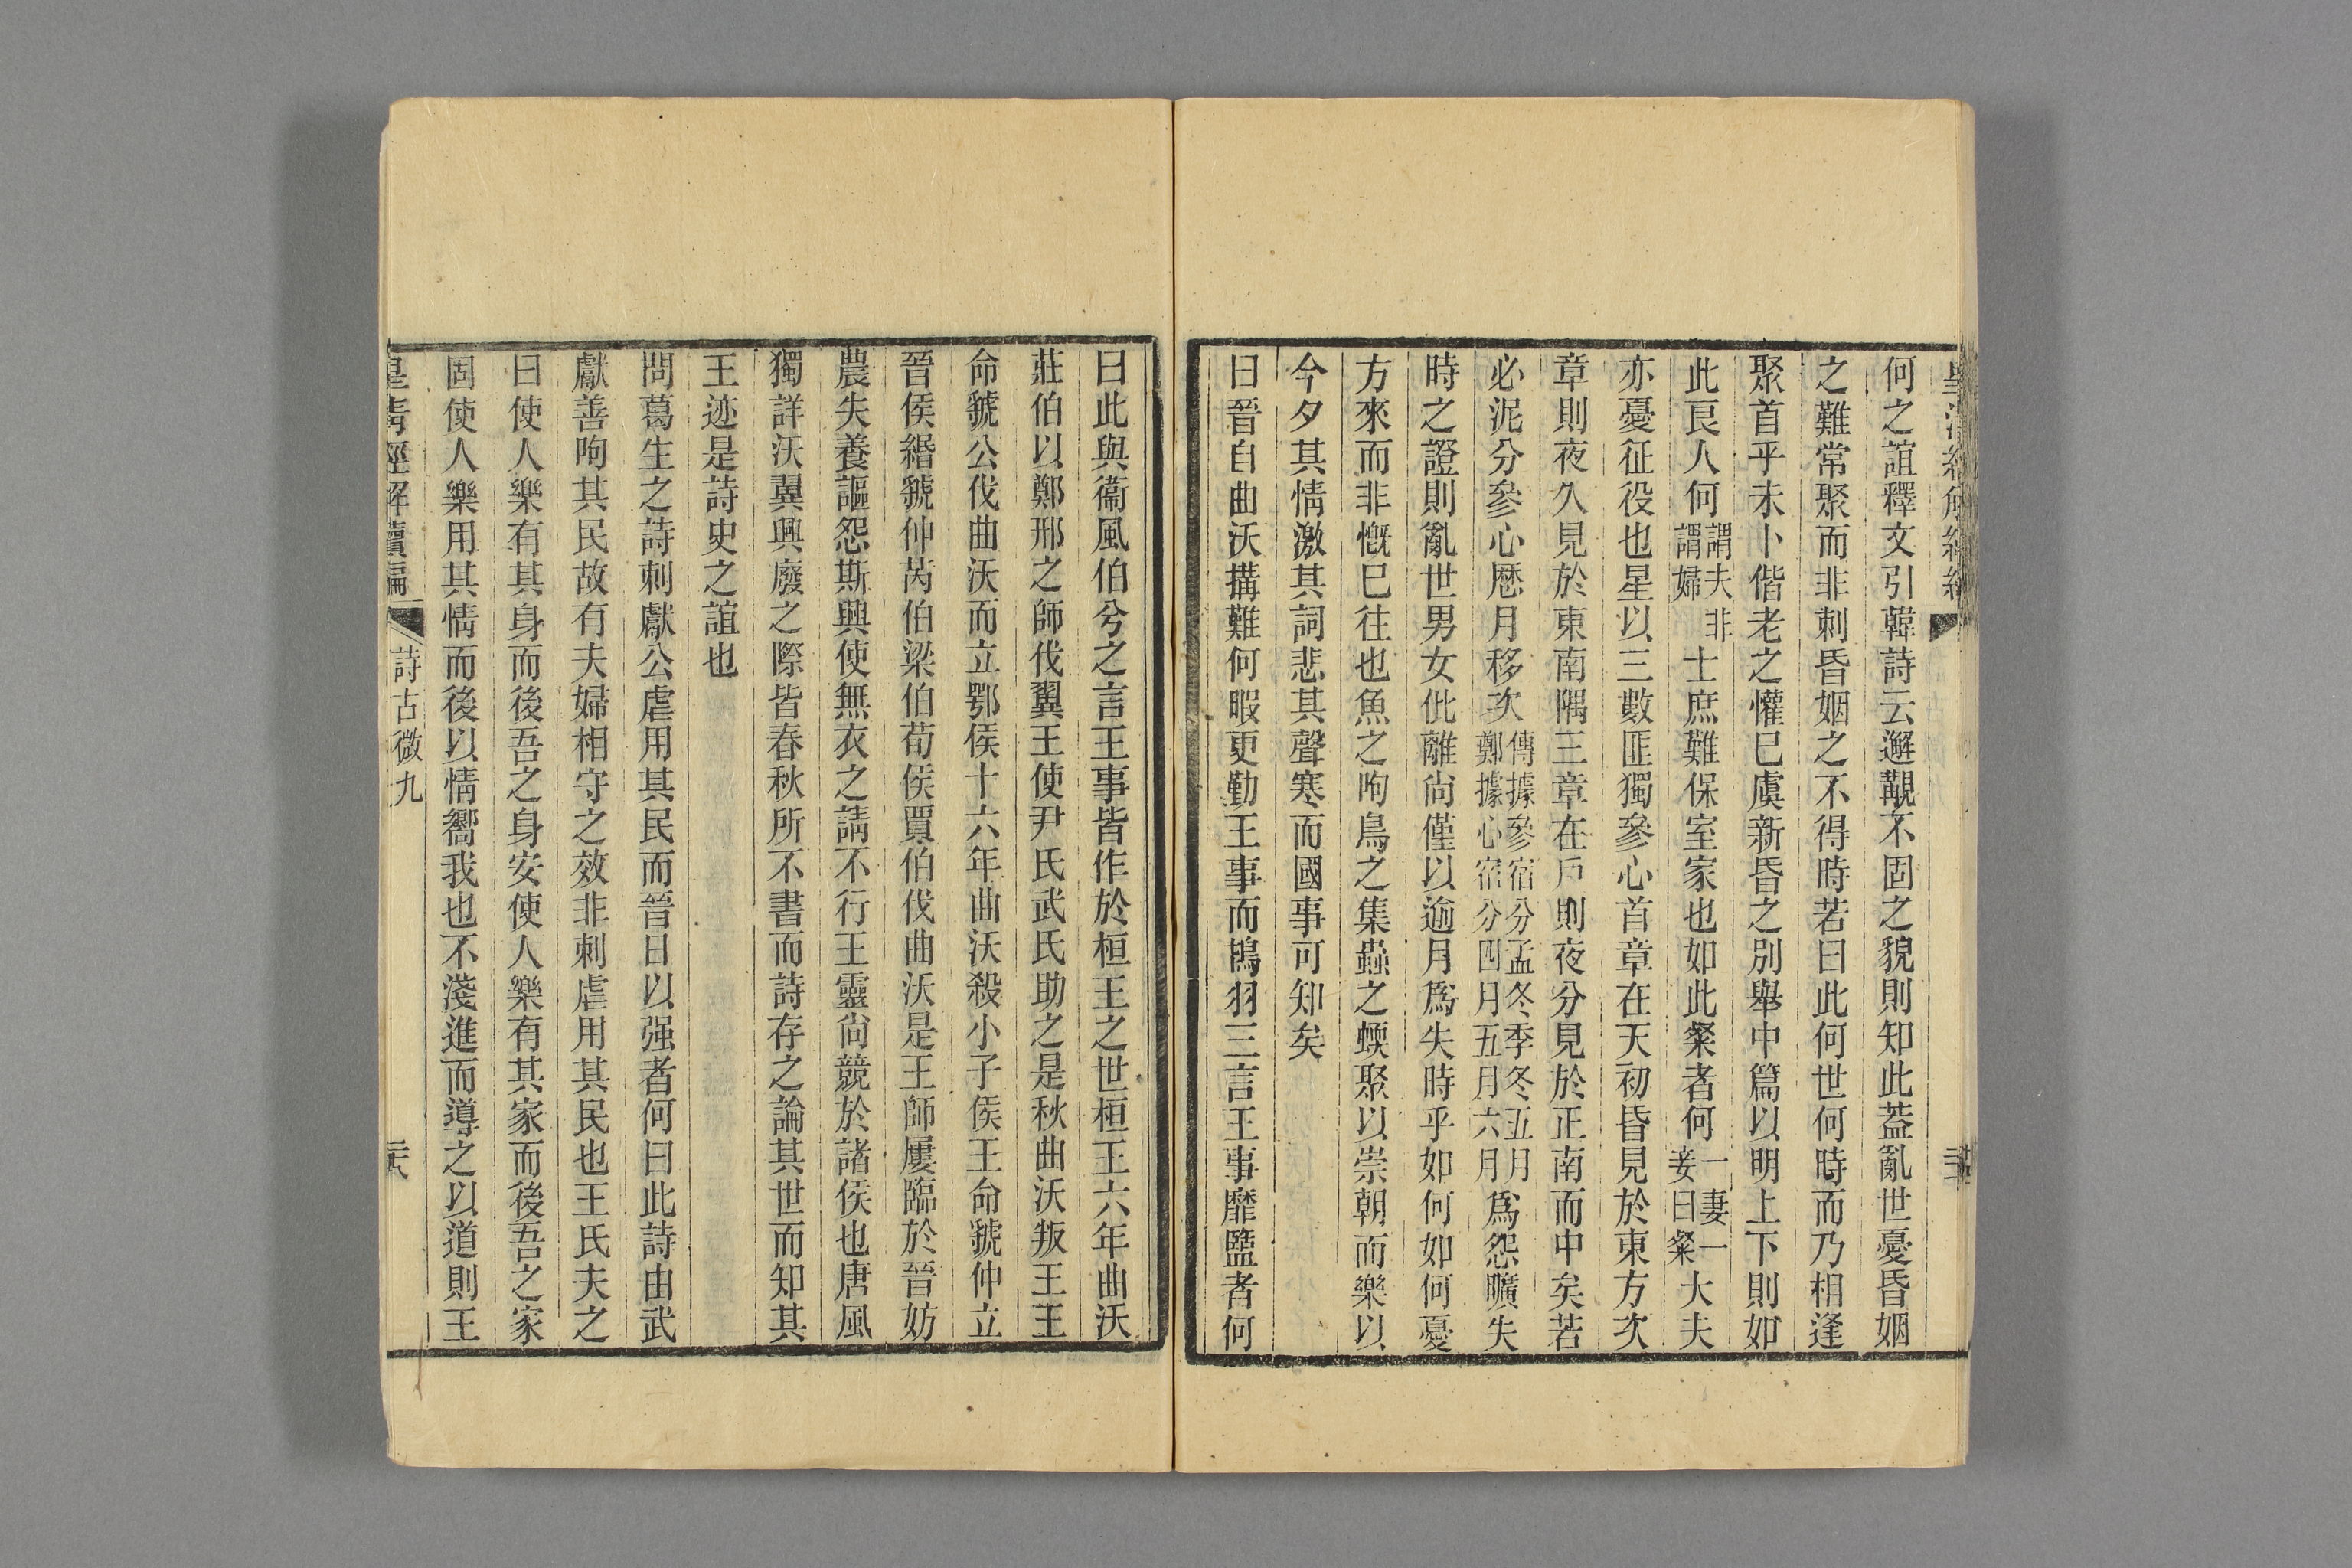 何之誼釋文引韓詩云邂覯不固之貌則知此蓋亂世憂昏姻
之難常聚而非刺昏姻之不得時若曰此何世何時而乃相逢
聚首乎未卜偕老之懽已虞新昏之別舉中篇以明上下則如
此良人何謂夫非謂婦士庶難保室家也如此粲者何一妻一妾曰粲大夫
亦憂征役也星以三數匪獨參心首章在天初昏見於東方次
章則夜久見於東南隅三章在戶則夜分見於正南而中矣若
必泥分參心厯月移次傳據參宿分孟冬季冬五月鄭據心宿分四月五月六月爲怨曠失
時之證則亂世男女仳離尙僅以逾月爲失時乎如何如何憂
方來而非慨已往也魚之呴鳥之集蟲之蝡聚以崇朝而樂以
今夕其情激其詞悲其聲寒而國事可知矣
曰晉自曲沃搆難何暇更勤王事而鴇羽三言王事靡盬者何
曰此與衞風伯兮之言王事皆作於桓王之世桓王六年曲沃
莊伯以鄭邢之師伐翼王使尹氏武氏助之是秋曲沃叛王王
命虢公伐曲沃而立鄂侯十六年曲沃殺小子侯王命虢仲立
晉侯緡虢仲芮伯梁伯荀侯賈伯伐曲沃是王師屢臨於晉妨
農失養謳怨斯興使無衣之請不行王靈尙競於諸侯也唐風
獨詳沃翼興廢之際皆春秋所不書而詩存之論其世而知其
王迹是詩史之誼也
問葛生之詩刺獻公虐用其民而晉日以强者何曰此詩由武
獻善呴其民故有夫婦相守之效非刺虐用其民也王氏夫之
曰使人樂有其身而後吾之身安使人樂有其家而後吾之家
固使人樂用其情而後以情嚮我也不淺進而導之以道則王
皇淸經解續編
詩古微九